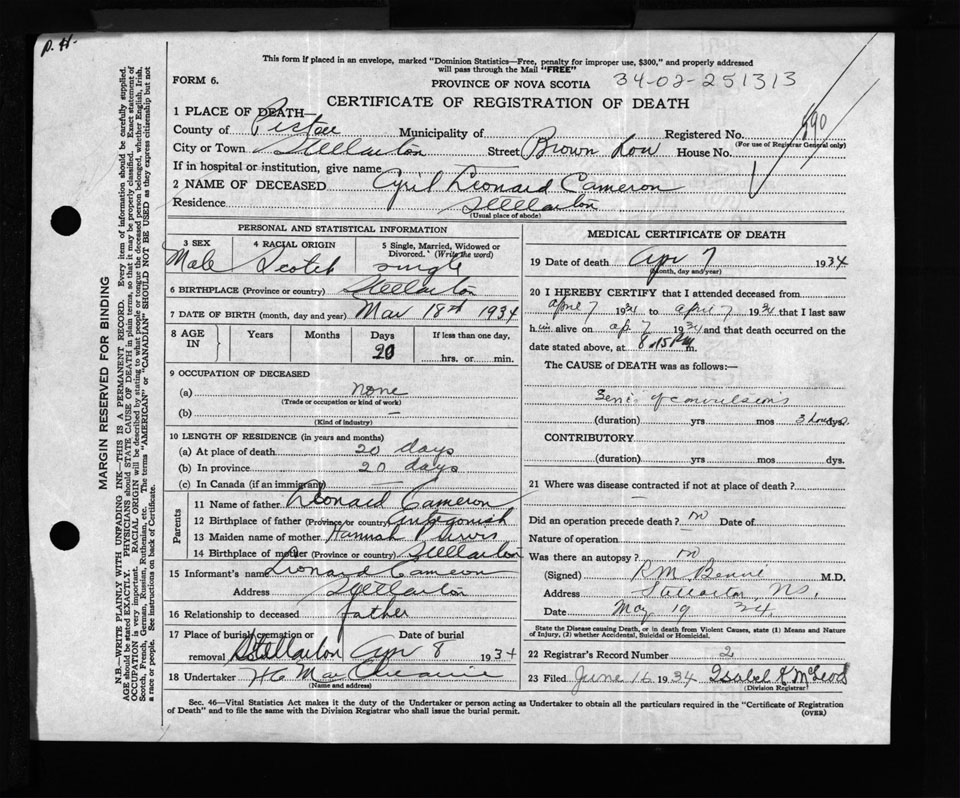 P. H.
This form if placed in an envelope, marked "Dominion Statistics—Free, penalty for improper use, $300," and properly addressed
will pass through the Mail "FREE"
FORM 6.
PROVINCE OF NOVA SCOTIA
34-02-251313
CERTIFICATE OF REGISTRATION OF DEATH
1 PLACE OF DEATH—
County of Pictou Municipality of Registered No. 890
(For use of Registrar General only)
City or Town Stellarton Street Brown Row House No.
If in hospital or institution, give name
2 NAME OF DECEASED Cyril Leonard Cameron
Residence Stellarton
(Usual place of abode)
PERSONAL AND STATISTICAL INFORMATION
3 SEX 4 RACIAL ORIGIN 5 Single, Married, Widowed or Divorced. (Write the word)
Male Scotch single
6 BIRTHPLACE (Province or country) Stellarton
7 DATE OF BIRTH (month, day and year) Mar 18th 1934
8 AGE IN Years Months Days If less than one day,
20 hrs. or min.
9 OCCUPATION OF DECEASED
(a) none
(Trade or occupation or kind of work)
(b) —
(Kind of industry)
10 LENGTH OF RESIDENCE (in years and months)
(a) At place of death 20 days
(b) In province 20 days
(c) In Canada (if an immigrant) —
Parents
11 Name of father Leonard Cameron
12 Birthplace of father (Province or country) Antigonish
13 Maiden name of mother Hannah Purvis
14 Birthplace of mother (Province or country) Stellarton
15 Informant's name Leonard Cameron
Address Stellarton
16 Relationship to deceased father
17 Place of burial, cremation or removal Date of burial
Stellarton Apr 8 1934
18 Undertaker
(Name and address)
MEDICAL CERTIFICATE OF DEATH
19 Date of death Apr 7 1934
(Month, day and year)
20 I HEREBY CERTIFY that I attended deceased from
April 7 1934 to April 7 1934 that I last saw
him alive on Ap 7 1934 and that death occurred on the
date stated above, at 8.15 P.m.
The CAUSE of DEATH was as follows:—
Series of convulsions
(duration) yrs mos 3 hours dys.
CONTRIBUTORY
(duration) yrs mos dys.
21 Where was disease contracted if not at place of death?
Did an operation precede death? no Date of
Nature of operation
Was there an autopsy? no
(Signed) M.D.
Address Stellarton N.S.
Date May 19 34
State the Disease causing Death, or in death from Violent Causes, state (1) Means and Nature
of Injury, (2) whether Accidental, Suicidal or Homicidal.
22 Registrar's Record Number 2
23 Filed June 16 1934 Isabel K McLeod
(Division Registrar)
Sec. 46—Vital Statistics Act makes it the duty of the Undertaker or person acting as Undertaker to obtain all the particulars required in the "Certificate of Registration
of Death" and to file the same with the Division Registrar who shall issue the burial permit.
(OVER)
MARGIN RESERVED FOR BINDING
N.B.—WRITE PLAINLY WITH UNFADING INK—THIS IS A PERMANENT RECORD. Every item of information should be carefully supplied.
AGE should be stated EXACTLY. PHYSICIANS should STATE CAUSE OF DEATH in plain terms, so that it may be properly classified. Exact statement of
OCCUPATION is very important. RACIAL ORIGIN will be described by stating to what people or tongue the deceased person belonged, whether English, Irish,
Scotch, French, German, Russian, Ruthenian, etc. The terms "AMERICAN" or "CANADIAN" SHOULD NOT BE USED as they express citizenship but not
a race or people. See instructions on back of Certificate.